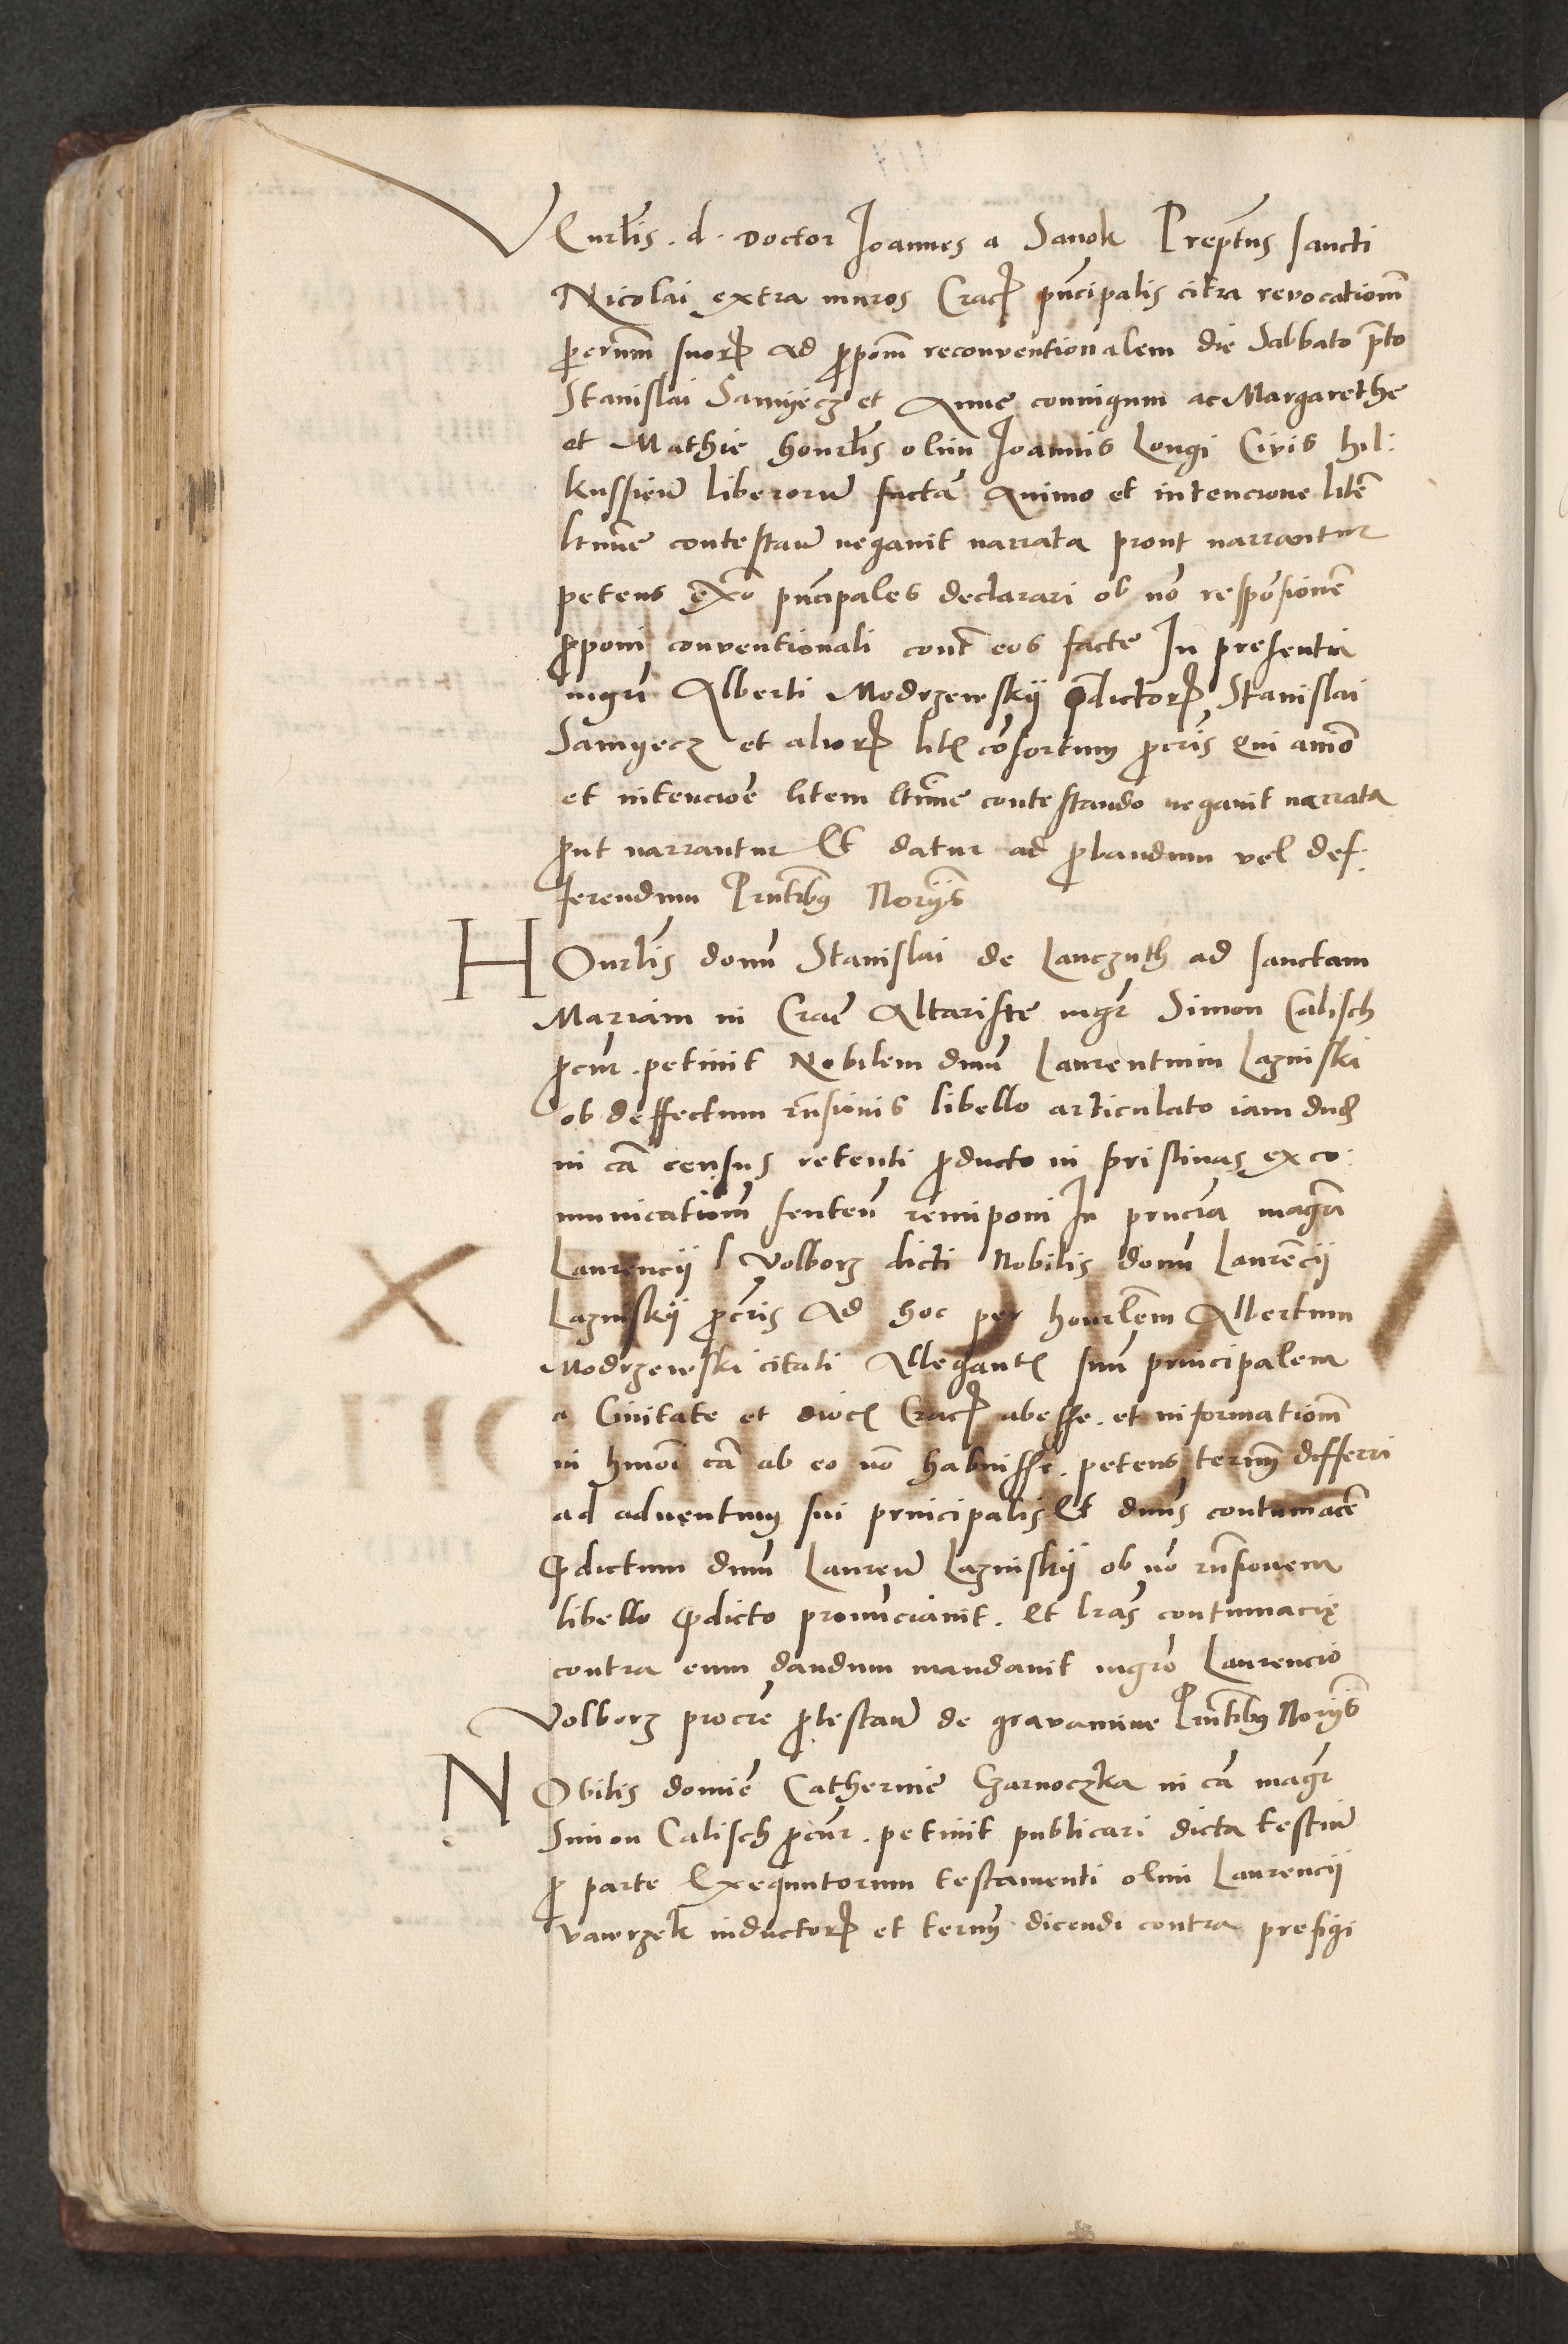 VEnrlis . d . Doctor Joannes a Sanok Prepts sancti
Nicolai extra muros Crac principalis citra revocationem
procrum suor ad ppom reconventionalem die Sabbato pto
Stanislai Samyecz et Anne coniugum ac Margarethe
et Mathie honrlis olim Joannis Longi Civis hil:
kussien liberorum factam animo et intencione litem
ltime contestan negavit narrata prout narrantur
petens exco principales declarari ob no responsionem
pponi conventionali cont eos facte In presentia
mgri Alberti Modrzewskij pdictor Stanislai
Samyecz et alior litis consortum pcris qui animo
et intencioe litem ltime contestando negavit narrata
put narrantur Et datur ad pbandum vel def:
ferendum Pntibus Norijs
HOnrlis domi Stanislai de Lanczuth ad sanctam
Mariam in Crac Altariste mgr Simon Calisch
pcur . petivit Nobilem dnum Laurentium Lazniski
ob deffectum rnsionis libello articulato iam dud
in ca census retenti pducto in pristinas exco:
municationum senten remiponi In pncia magri
Laurencij Volborz dicti Nobilis domi Laurencij
Laznskij pcris Ad hoc per honrlem Albertum
Modrzewski citati Allegantis suum principalem
a Civitate et dioc Crac abesse . et informationem
in hmoi ca ab eo no habuisse . petens termn differri
ad adventum sui principalis Et dnus contumacem
pdictum dnum Lauren Lazniskij ob no rnsionem
libello pdicto pronunciavit . Et lras contumacie
contra eum dandum mandavit mgro Laurencio
Volborz procre ptestan de gravamine Pntibus Norijs
NObilis domine Catherine Czarnoczka in ca magr
Simon Calisch pcur . petivit publicari dicta testium
p parte Exequutorum testamenti olim Laurencij
Vawrzek inductor et termn dicendi contra prefigi